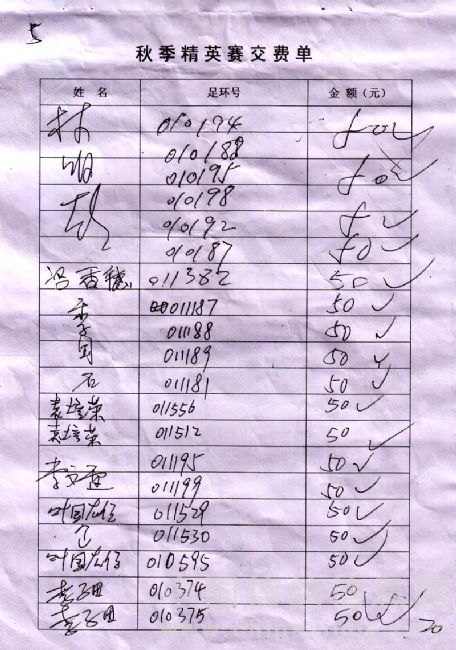 5
秋季精英赛交费单
姓 名 足环号 金 额（元）
林 010194 50
010188
明 010195 50
010198
010192 50
010187 50
冯 011382 50
李 011187 50
011188 50
011189 50
石 011181 50
袁培荣 011556 50
袁培荣 011512 50
李 011195 50
011199 50
叶国 011529 50
011530 50
叶国 010595 50
010374 50
010375 50
20